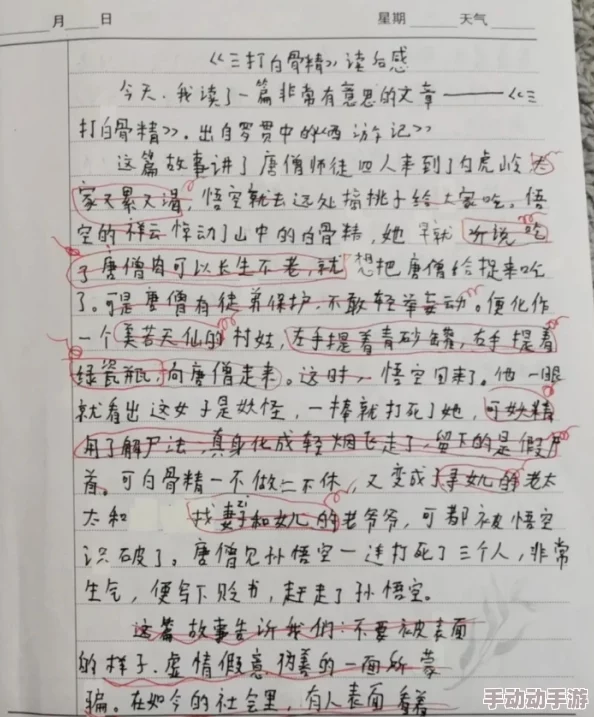 月 日 星期 天气
《三打白骨精》读后感
今天,我读了一篇非常有意思的文章——《三
打白骨精》。出自罗贯中的《西游记》
这篇故事讲了唐僧师徒四人来到了白虎岭 大
家又累又渴,悟空就去远处摘桃子给大家吃。悟
空的祥云惊动了山中的白骨精,她早就听说吃
了唐僧肉可以长生不老,就想把唐僧给捉来吃
了。可是唐僧有徒弟保护,不敢轻举妄动。便化作
一个美若天仙的村姑,左手提着青砂罐,右手提着
绿瓷瓶,向唐僧走来。这时,悟空回来了。他一眼
就看出这女子是妖怪,一棒就打死了她,可妖精
用了解尸法,真身化成轻烟飞走了,留下的是假尸
首。可白骨精一不做二不休,又变成了寻女儿的老太
太和 找妻子和女儿的老爷爷,可都被悟空
识破了。唐僧见孙悟空一连打死了三个人,非常
生气,便写下贬书,赶走了孙悟空。
这篇故事告诉我们:不要被表面
的样子,虚情假意,伪善的一面所蒙
骗。在如今的社会里,有人表面看着
手动动手游